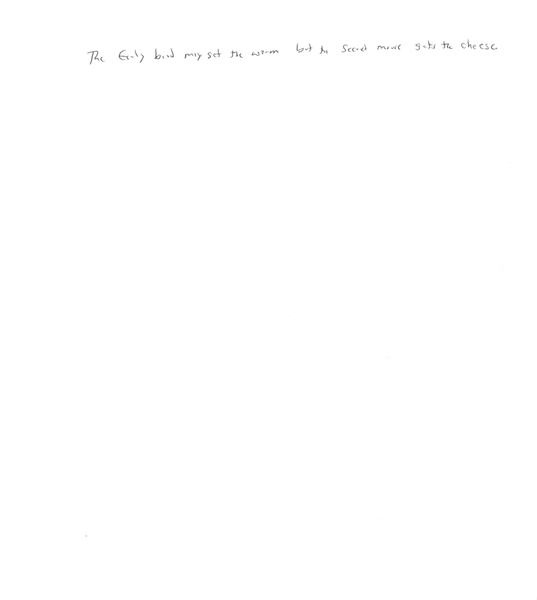 The Early bird may get the worm but the second mouse gets the cheese